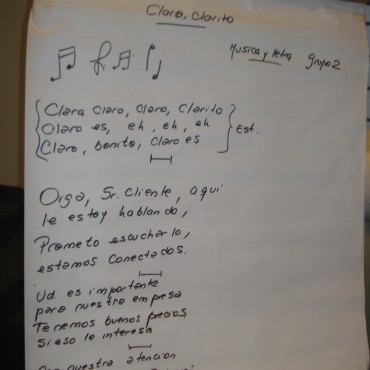 Claro, Clarito
Musica y letra Grupo 2
Clara Claro, Claro, Clarito
Claro es, eh, eh, eh
Claro, bonito, Claro es
Est.
Oiga, Sr. Cliente, aqui
le estoy hablando,
Prometo escucharlo,
estamos Conectados.
Ud es importante
para nuestra empresa
Tenemos buenos precios
Si eso le interesa
nuestra atencion